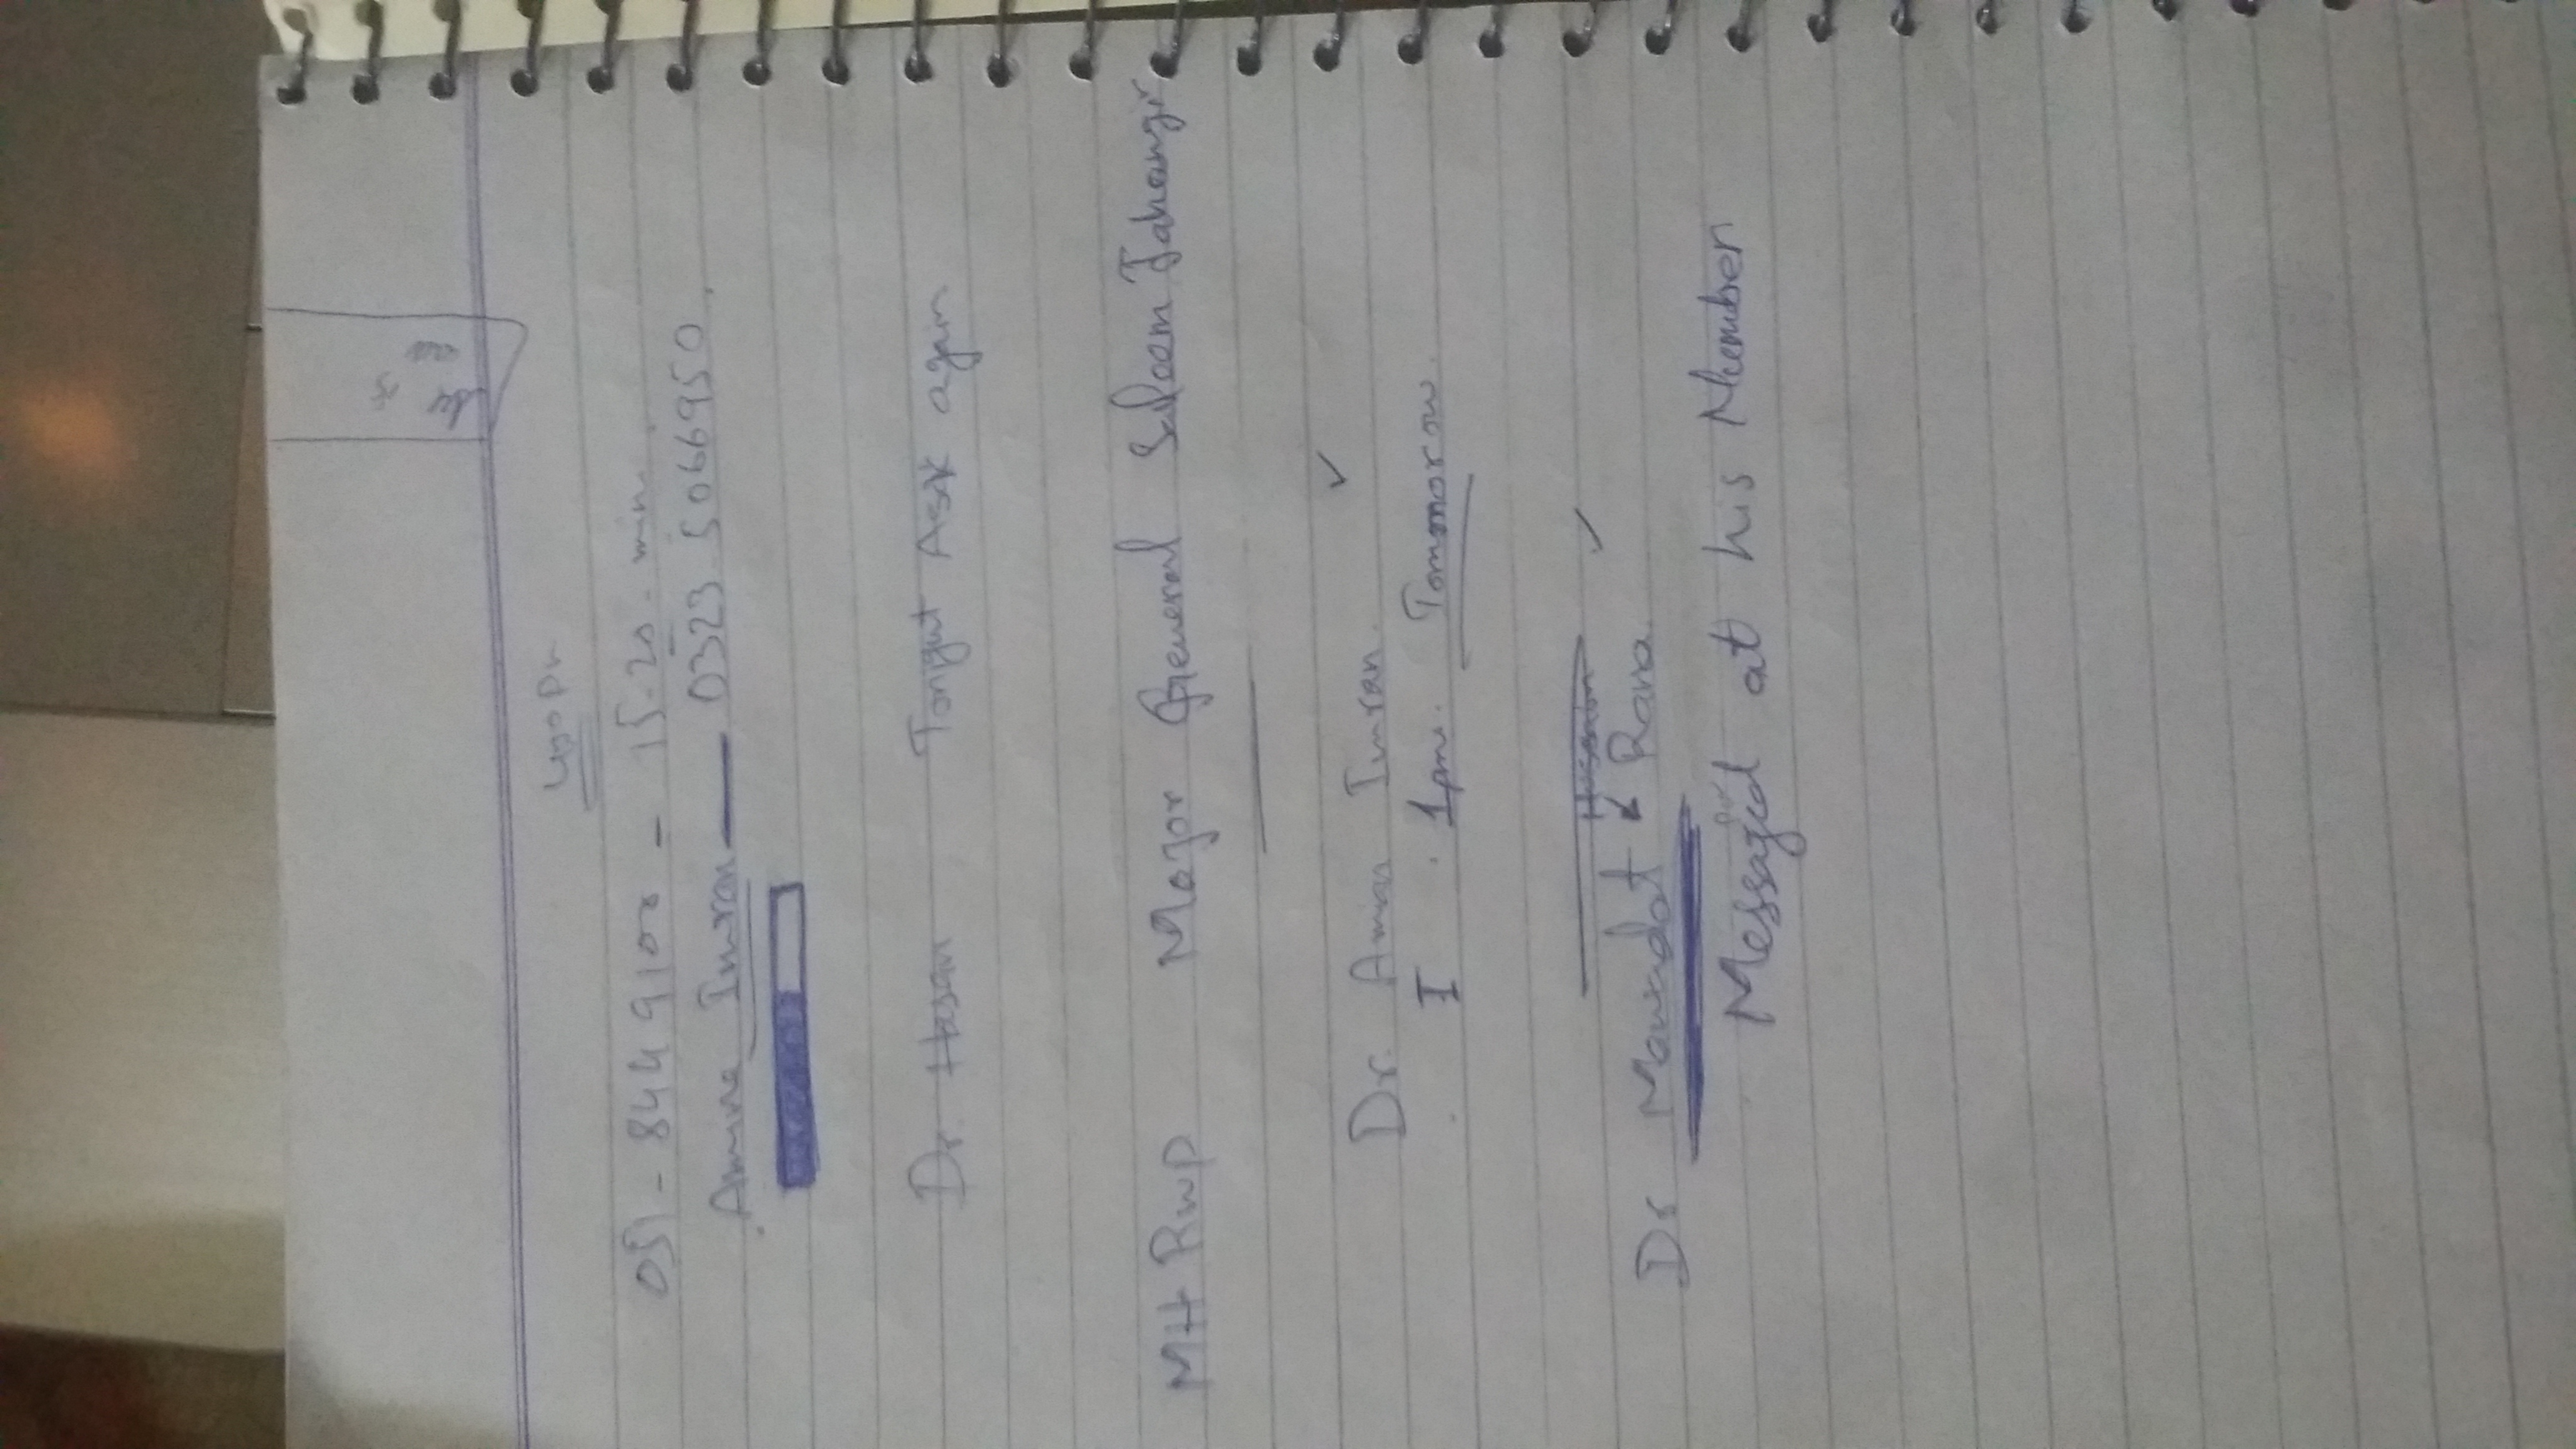 400 Pm
051 - 8449100 - 15-20 min.
Amina Imran — 0323 5066950.
Dr. Hasan Tonigut Ask again
MH Rwp Major General Saleem Jahangir
Dr. Imran ✓
I 1pm. Tommorow.
Hussain ✓
Dr Mawadat Rana.
Messaged at his Number